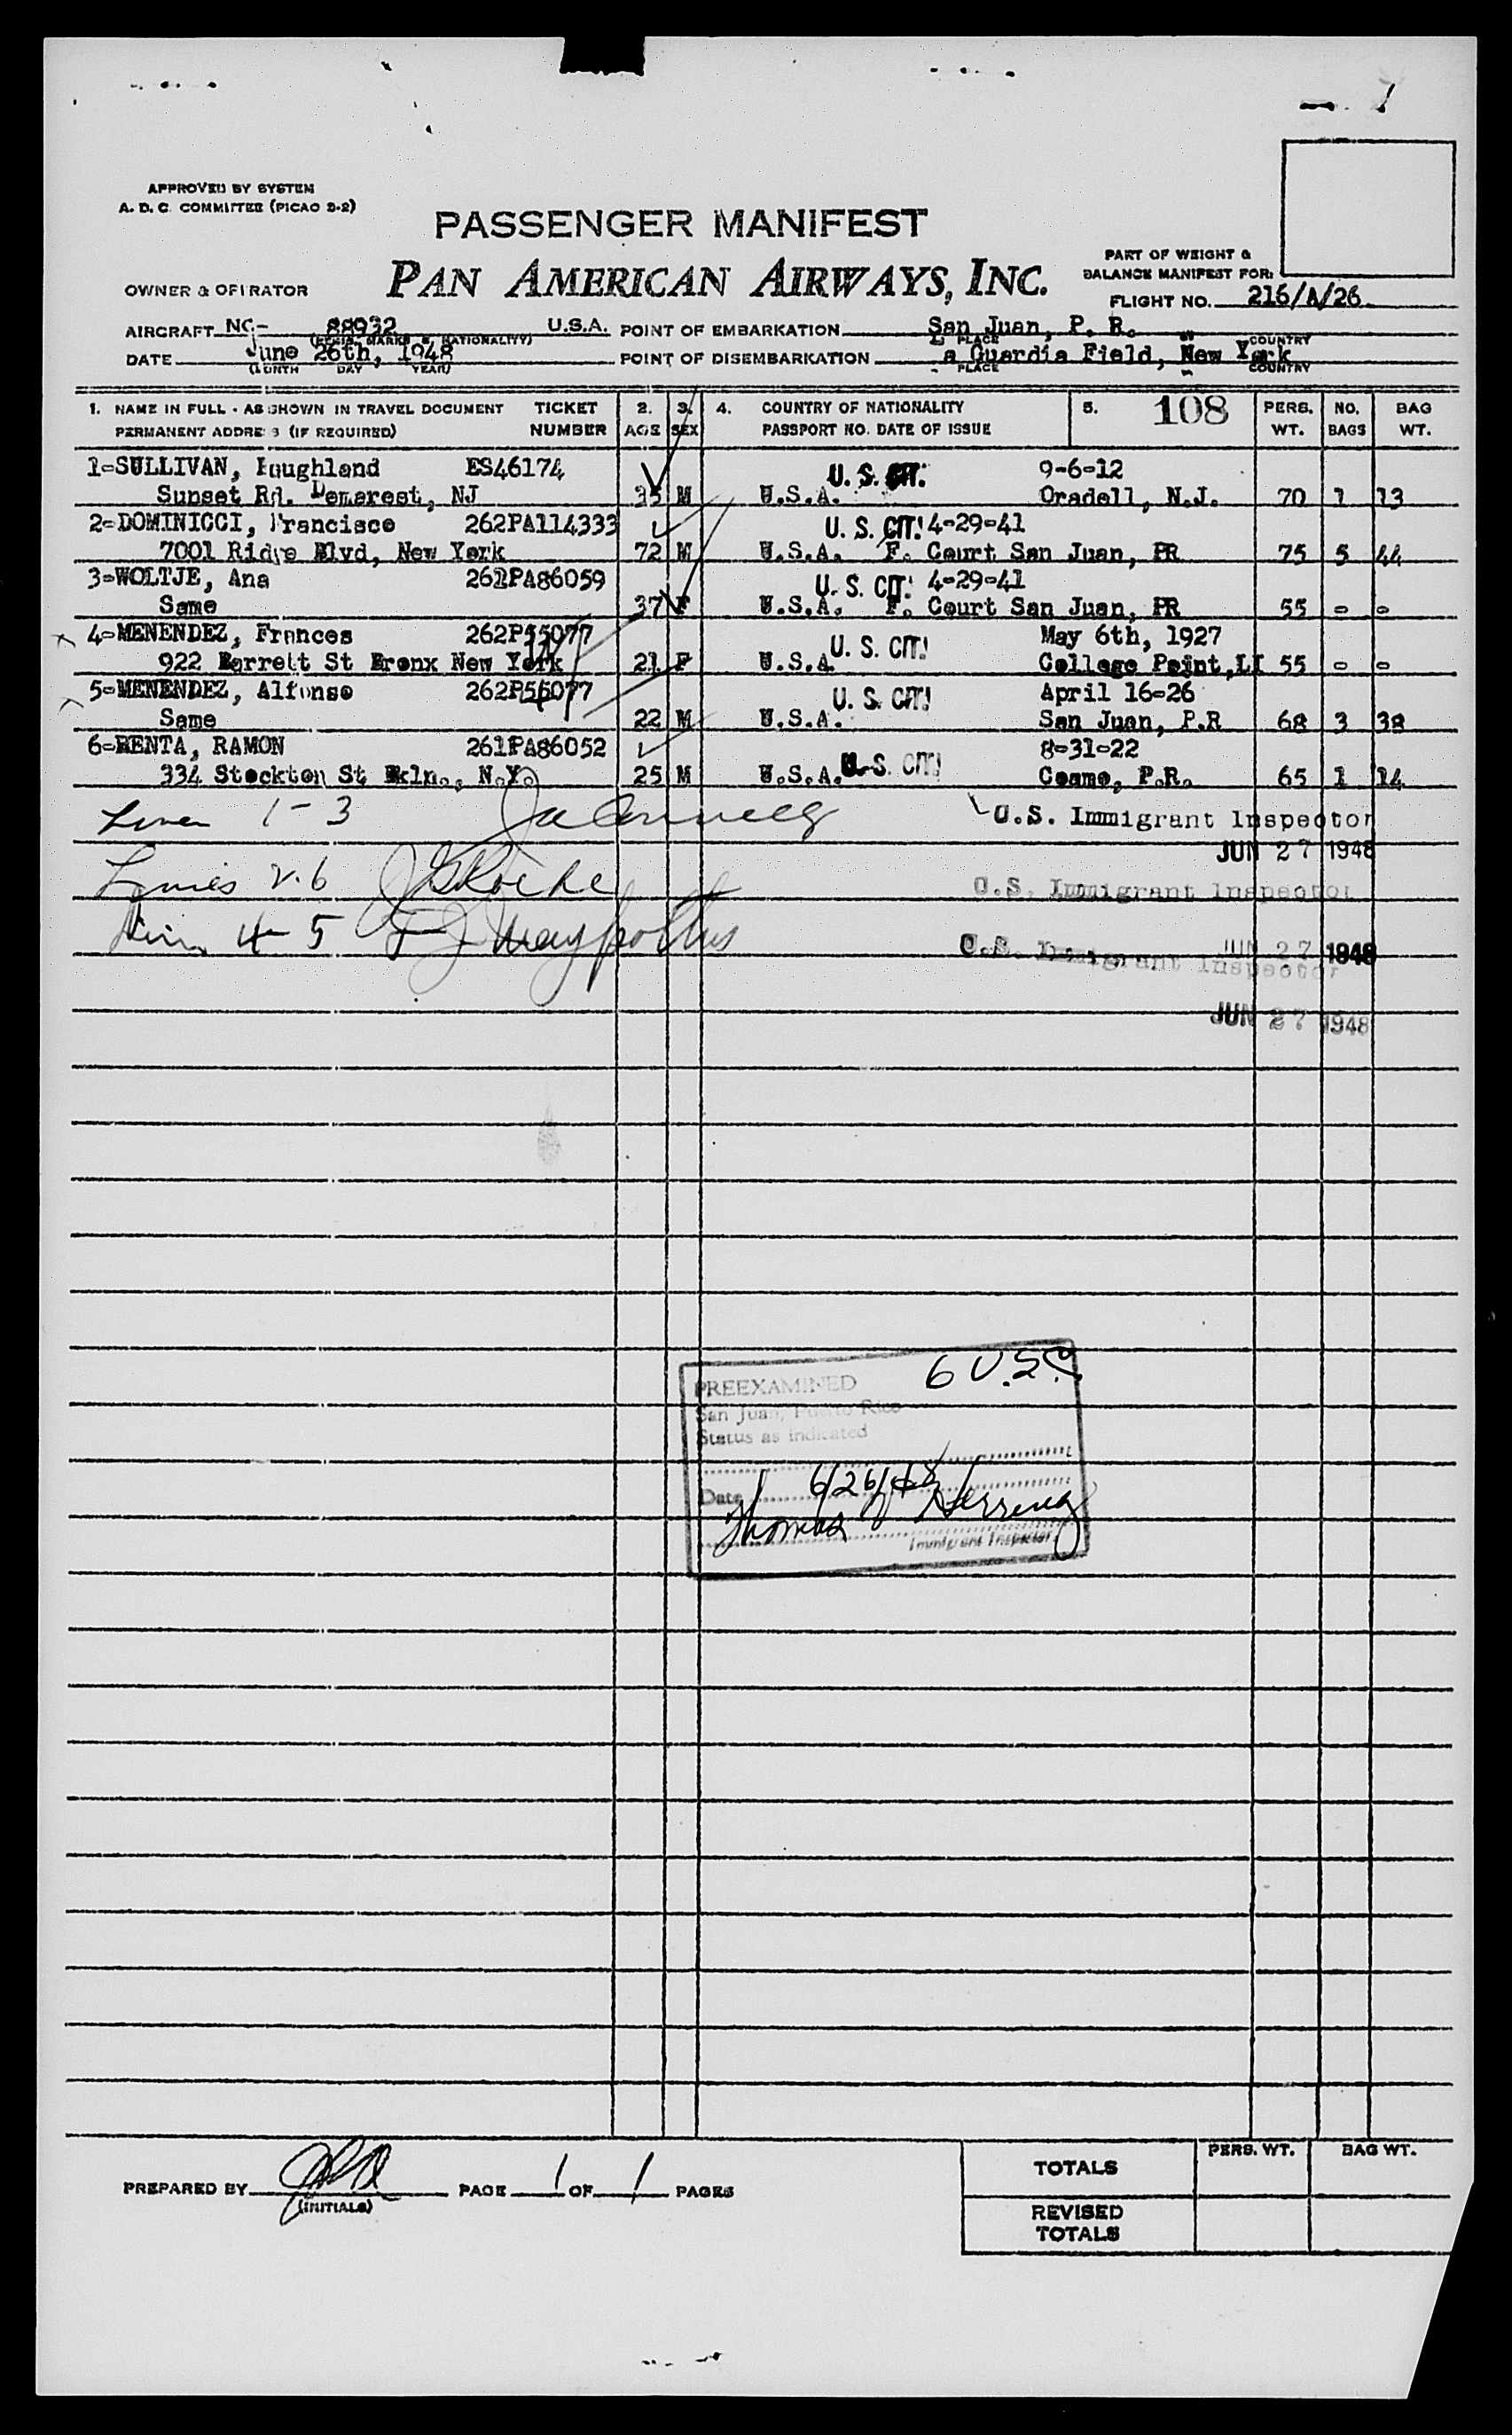 APPROVED BY SYSTEM
A. D. C. COMMITTEE (PICAO D-2)
PASSENGER MANIFEST
PAN AMERICAN AIRWAYS, INC.
OWNER & OPERATOR
PART OF WEIGHT &
BALANCE MANIFEST FOR:
FLIGHT NO. 216/A/26
AIRCRAFT NC- 88932 U.S.A. POINT OF EMBARKATION San Juan, P. R.
(REGIS. MARKS & NATIONALITY) PLACE COUNTRY
DATE June 26th, 1948 POINT OF DISEMBARKATION La Guardia Field, New York
(MONTH DAY YEAR) PLACE COUNTRY
1. NAME IN FULL - AS SHOWN IN TRAVEL DOCUMENT TICKET 2. 3. 4. COUNTRY OF NATIONALITY 5. 108 PERS. NO. BAG
PERMANENT ADDRESS (IF REQUIRED) NUMBER AGE SEX PASSPORT NO. DATE OF ISSUE WT. BAGS WT.
1-SULLIVAN, Houghland ES46174 U. S. CIT. 9-6-12
Sunset Rd. Demarest, NJ 35 M U.S.A. Oradell, N.J. 70 1 13
2-DOMINICCI, Francisco 262PA114333 U. S. CIT! 4-29-41
7001 Ridge Blvd, New York 72 M U.S.A. F. Court San Juan, PR 75 5 44
3-WOLTJE, Ana 261PA86059 U. S. CIT! 4-29-41
Same 37 F U.S.A. F. Court San Juan, PR 55 - -
4-MENENDEZ, Frances 262P55077 U. S. CIT! May 6th, 1927
922 Barrett St Bronx New York 21 F U.S.A. College Point,LI 55 - -
5-MENENDEZ, Alfonso 262P56077 U. S. CIT! April 16-26
Same 22 M U.S.A. San Juan, P.R 68 3 38
6-RENTA, RAMON 261PA86052 U. S. CIT! 8-31-22
334 Stockton St Bkln., N.Y. 25 M U.S.A. Coamo, P.R. 65 1 14
1-3 U.S. Immigrant Inspector
JUN 27 1948
Lines 2.6 U.S. Immigrant Inspector
4-5 JUN 27 1948
U.S. Immigrant Inspector
JUN 27 1948
PREEXAMINED 6 U.S.C.
San Juan, Puerto Rico
Status as indicated
Date 6/26/48
Thomas J Herring
Immigrant Inspector
PREPARED BY PAGE 1 OF 1 PAGES
(INITIALS)
PERS. WT. BAG WT.
TOTALS
REVISED
TOTALS